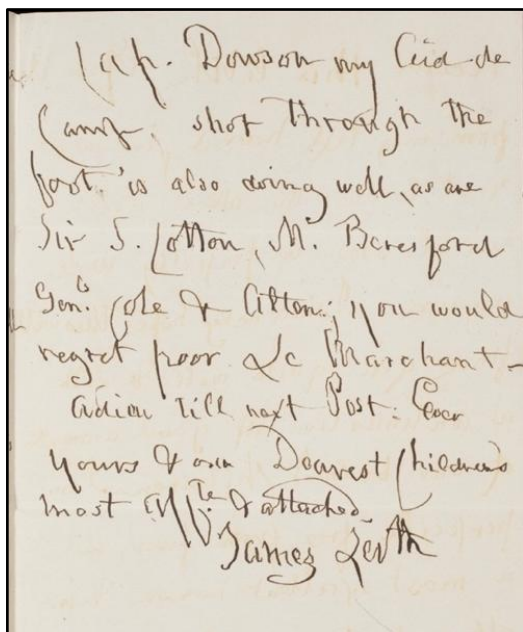 Cap. Dowson my Aid de
Camp. shot through the
foot. is also doing well, as are
Sir S. Cotton, M. Beresford
Genls Cole & Alten; you would
regret poor Le Marchant -
Adieu till next Post. Ever
yours & our Dearest Children's
most Affte & attached
James Leith